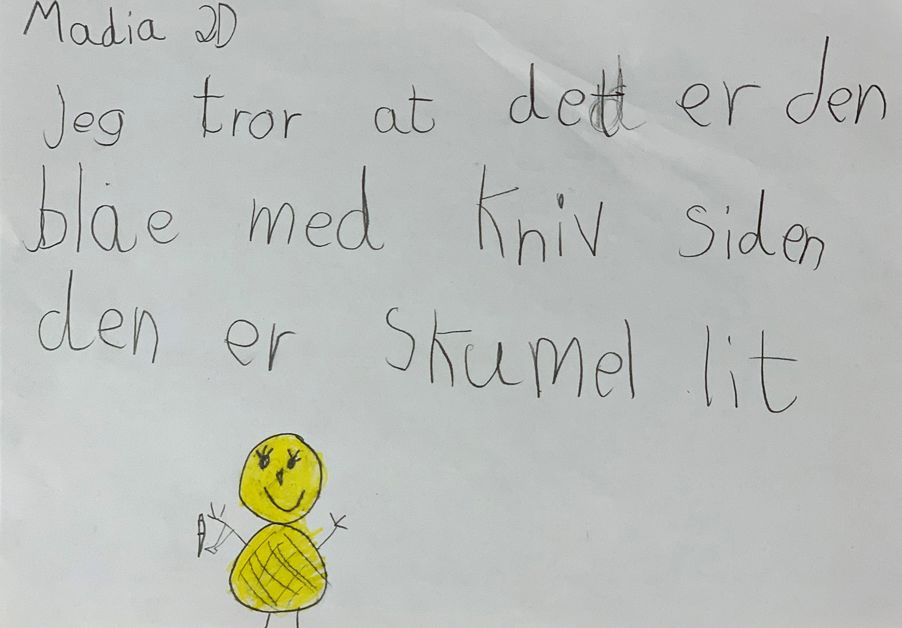 Madia 2D
Jeg tror at det er den
blåe med Kniv siden
den er Skumel lit